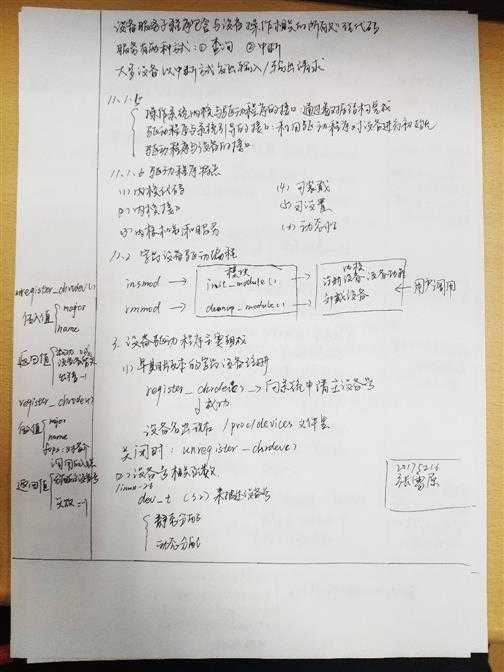 设备服务子程序包含与设备操作相关的所有处理代码
服务有两种方式：① 查询 ② 中断
大多设备以中断方式发出输入/输出请求
11.1.5
操作系统内核与驱动程序的接口：通过数据结构完成
驱动程序与系统引导的接口：利用驱动程序对设备进行初始化
驱动程序与设备的接口
11.1.6 驱动程序特点
(1) 内核代码 (4) 可装载
(2) 内核接口 (5) 可设置
(3) 内核机制和服务 (6) 动态性
11.2 字符设备驱动编程
模块 内核
insmod → init_module() → 注册设备 设备功能
rmmod → cleanup_module() → 卸载设备 ← 用户调用
unregister_chrdev()
传入值 major
name
返回值
出错 -1
3. 设备驱动程序主要组成
(1) 早期版本的字符设备注册
register_chrdev() → 向系统申请主设备号
↓ 成功
设备名出现在 /proc/devices 文件里
关闭时：unregister_chrdev()
register_chrdev()
传入值 major
name
fops
返回值
失败：-1
(2) 设备号相关函数
linux 2.6
dev_t (32) 来描述设备号
静态分配
动态分配